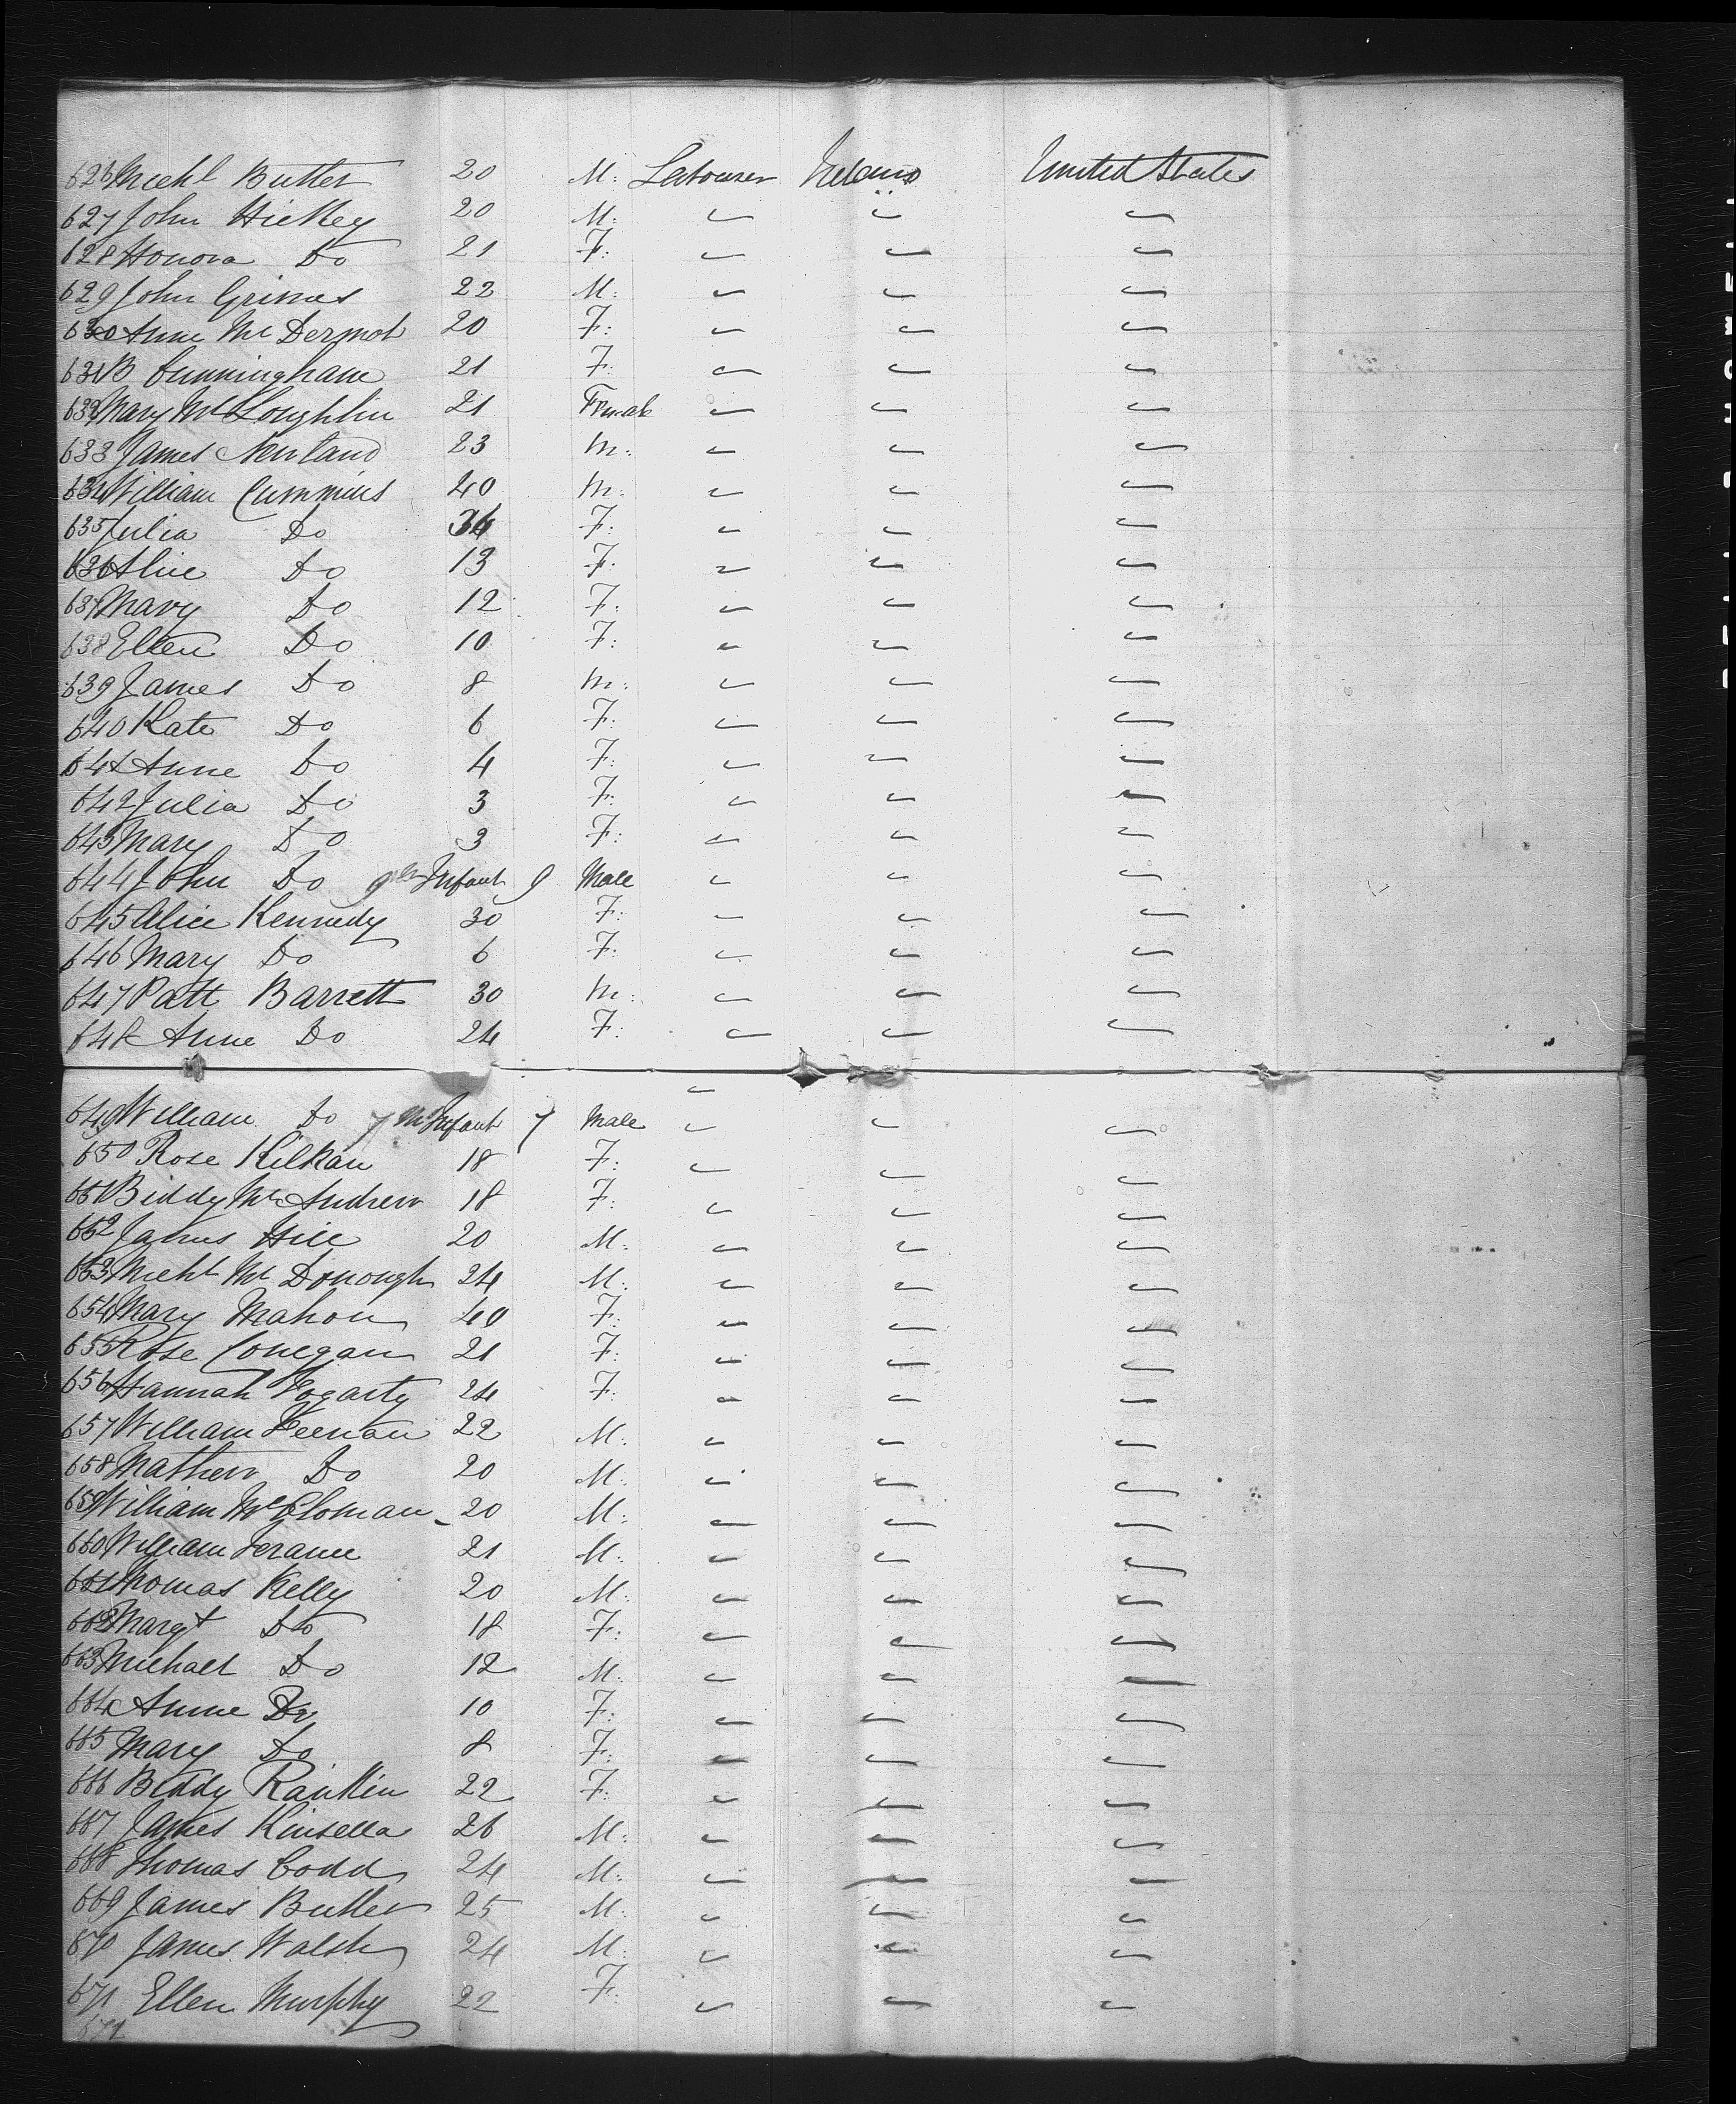 626 Michl Butler 20 M: Labourer Ireland United States
627 John Hickey 20 M: " " "
628 Honora Do 21 F: " " "
629 John Grimes 22 M: " " "
630 Anne Mc Dermot 20 F: " " "
631 B Cunningham 21 F: " " "
632 Mary McLoughlin 21 Female " " "
633 James Newland 23 M: " " "
634 William Cummins 40 M: " " "
635 Julia Do 34 F: " " "
636 Alice Do 13 F: " " "
637 Mary Do 12 F: " " "
638 Ellen Do 10 F: " " "
639 James Do 8 M: " " "
640 Kate Do 6 F: " " "
641 Anne Do 4 F: " " "
642 Julia Do 3 F: " " "
643 Mary Do 3 F: " " "
644 John Do 9 m Infant 9 Male " " "
645 Alice Kennedy 30 F: " " "
646 Mary Do 6 F: " " "
647 Patt Barrett 30 M: " " "
648 Anne Do 24 F: " " "
649 William Do 7 m Infant 7 Male " " "
650 Rose Kilkan 18 F: " " "
651 Biddy Mc Andrew 18 F: " " "
652 James Hill 20 M: " " "
653 Michl Mc Donough 24 M: " " "
654 Mary Mahon 40 F: " " "
655 Rose Conegan 21 F: " " "
656 Hannah Fogarty 24 F: " " "
657 William Keenan 22 M: " " "
658 Mathew Do 20 M: " " "
659 William 20 M: " " "
660 William 21 M: " " "
661 Thomas Kelly 20 M: " " "
662 Margt Do 18 F: " " "
663 Michael Do 12 M: " " "
664 Anne Do 10 F: " " "
665 Mary Do 8 F: " " "
666 Biddy Rankin 22 F: " " "
667 James Kinsella 26 M: " " "
668 Thomas Codd 24 M: " " "
669 James Butler 25 M: " " "
670 James Walsh 24 M: " " "
671 Ellen Murphy 22 F: " " "
672